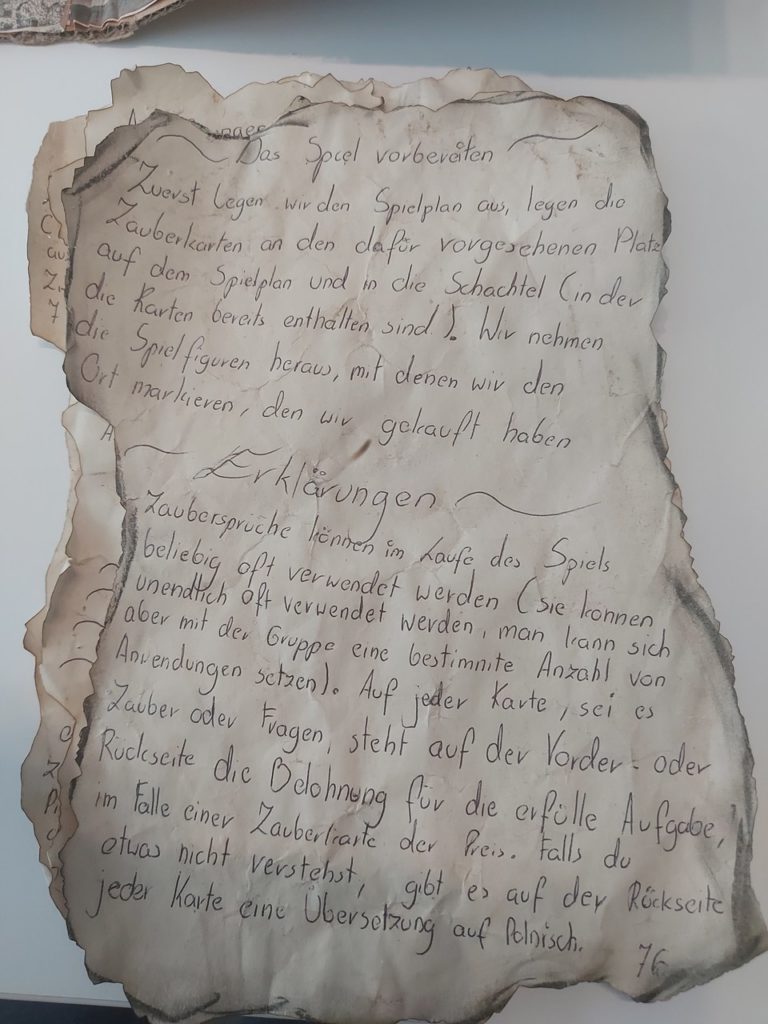 Das Spiel vorbereiten
Zuerst legen wir den Spielplan aus, legen die
Zauberkarten an den dafür vorgesehenen Platz
auf dem Spielplan und in die Schachtel (in der
die Karten bereits enthalten sind). Wir nehmen
die Spielfiguren heraus, mit denen wir den
Ort markieren, den wir gekauft haben
Erklärungen
Zaubersprüche können im Laufe des Spiels
beliebig oft verwendet werden (sie können
unendlich oft verwendet werden, man kann sich
aber mit der Gruppe eine bestimmte Anzahl von
Anwendungen setzen). Auf jeder Karte, sei es
Zauber oder Fragen, steht auf der Vorder- oder
Rückseite die Belohnung für die erfülle Aufgabe,
im Falle einer Zauberkarte der Preis. Falls du
etwas nicht verstehst, gibt es auf der Rückseite
jeder Karte eine Übersetzung auf Polnisch.